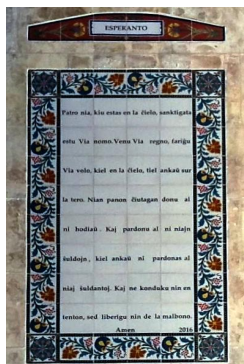 ESPERANTO
Patro nia, kiu estas en la ĉielo, sanktigata
estu Via nomo. Venu Via regno, fariĝu
Via volo, kiel en la ĉielo, tiel ankaŭ sur
la tero. Nian panon ĉiutagan donu al
ni hodiaŭ. Kaj pardonu al ni niajn
ŝuldojn, kiel ankaŭ ni pardonas al
niaj ŝuldantoj. Kaj ne konduku nin en
tenton, sed liberigu nin de la malbono.
Amen 2016